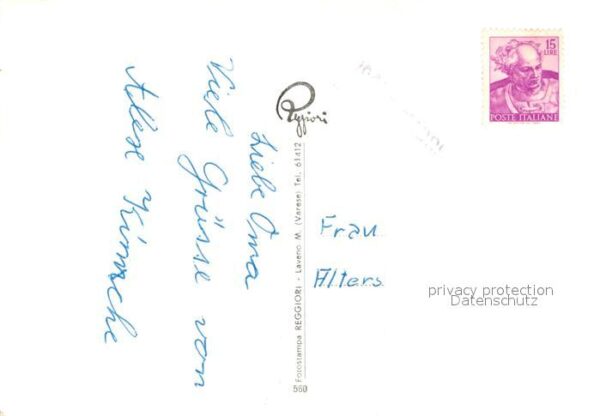 Liebe Oma
Viele Grüsse von
Alex
Reggiori
Fotostampa REGGIORI - Laveno M. (Varese) Tel. 61412
560
15
LIRE
POSTE ITALIANE
Frau
Alters
privacy protection
Datenschutz